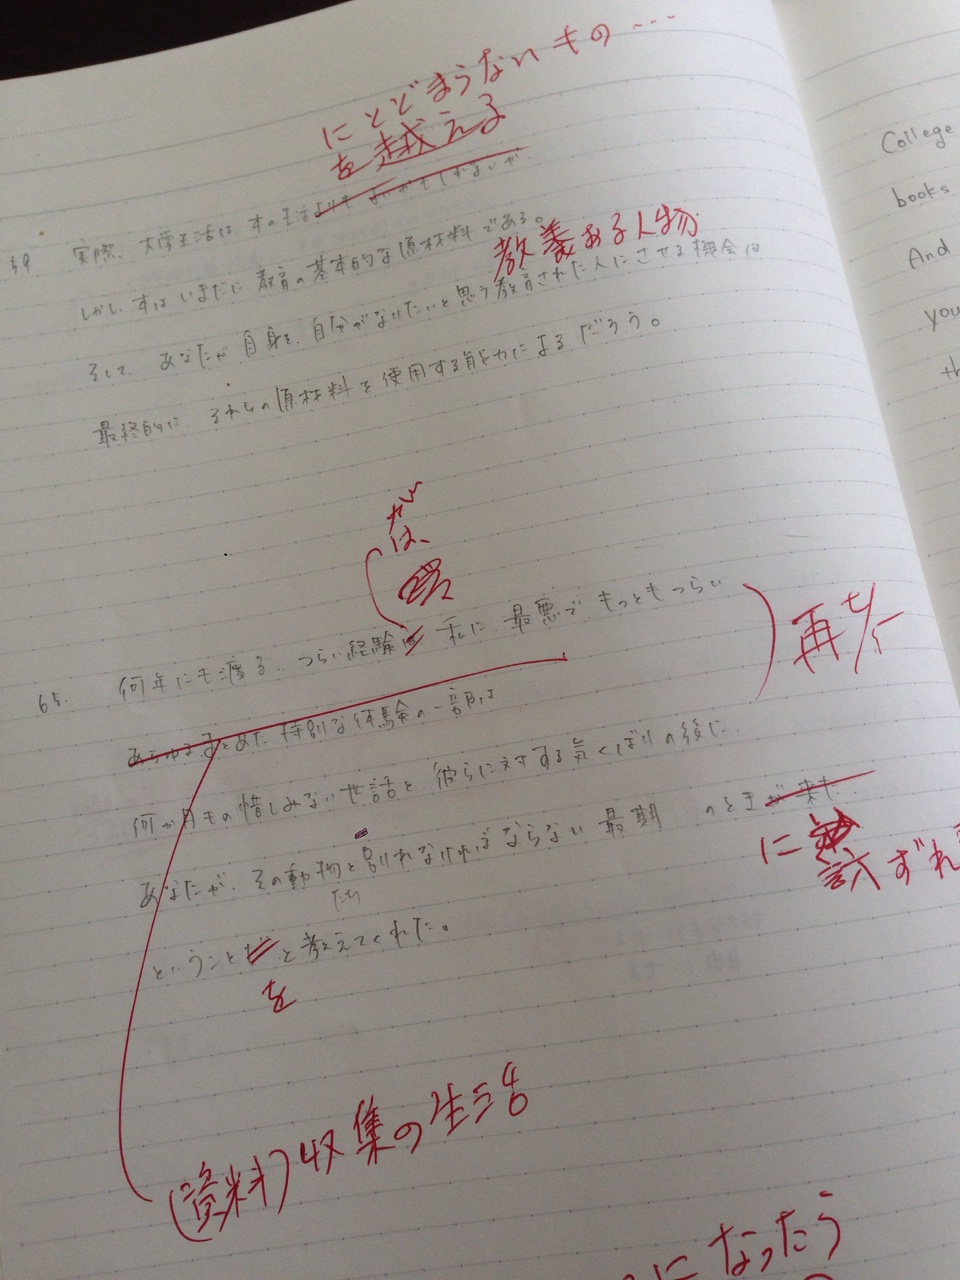 にとどまらないもの…
を越える
59 実際、大学生活は、本の生活よりも よいかもしれないが
教養ある人物
しかし、本はいまだに教育の基本的な原材料である。
そして、あなたが自身を、自分がなりたいと思う教育された人にさせる機会は
最終的に、それらの原材料を使用する能力によるだろう。
が
は、
65. 何年にも渡る、つらい経験は 私に 最悪で もっともつらい
再考
特別な体験の一部は
何か月もの惜しみない世話と 彼らに対する気くばりの後に、
あなたが、その動物と別れなければならない最期 のときが来た
たち
に
ずれ
ということだと教えてくれた。
を
(資料)収集の生活
になったら
College
books
And
you
th